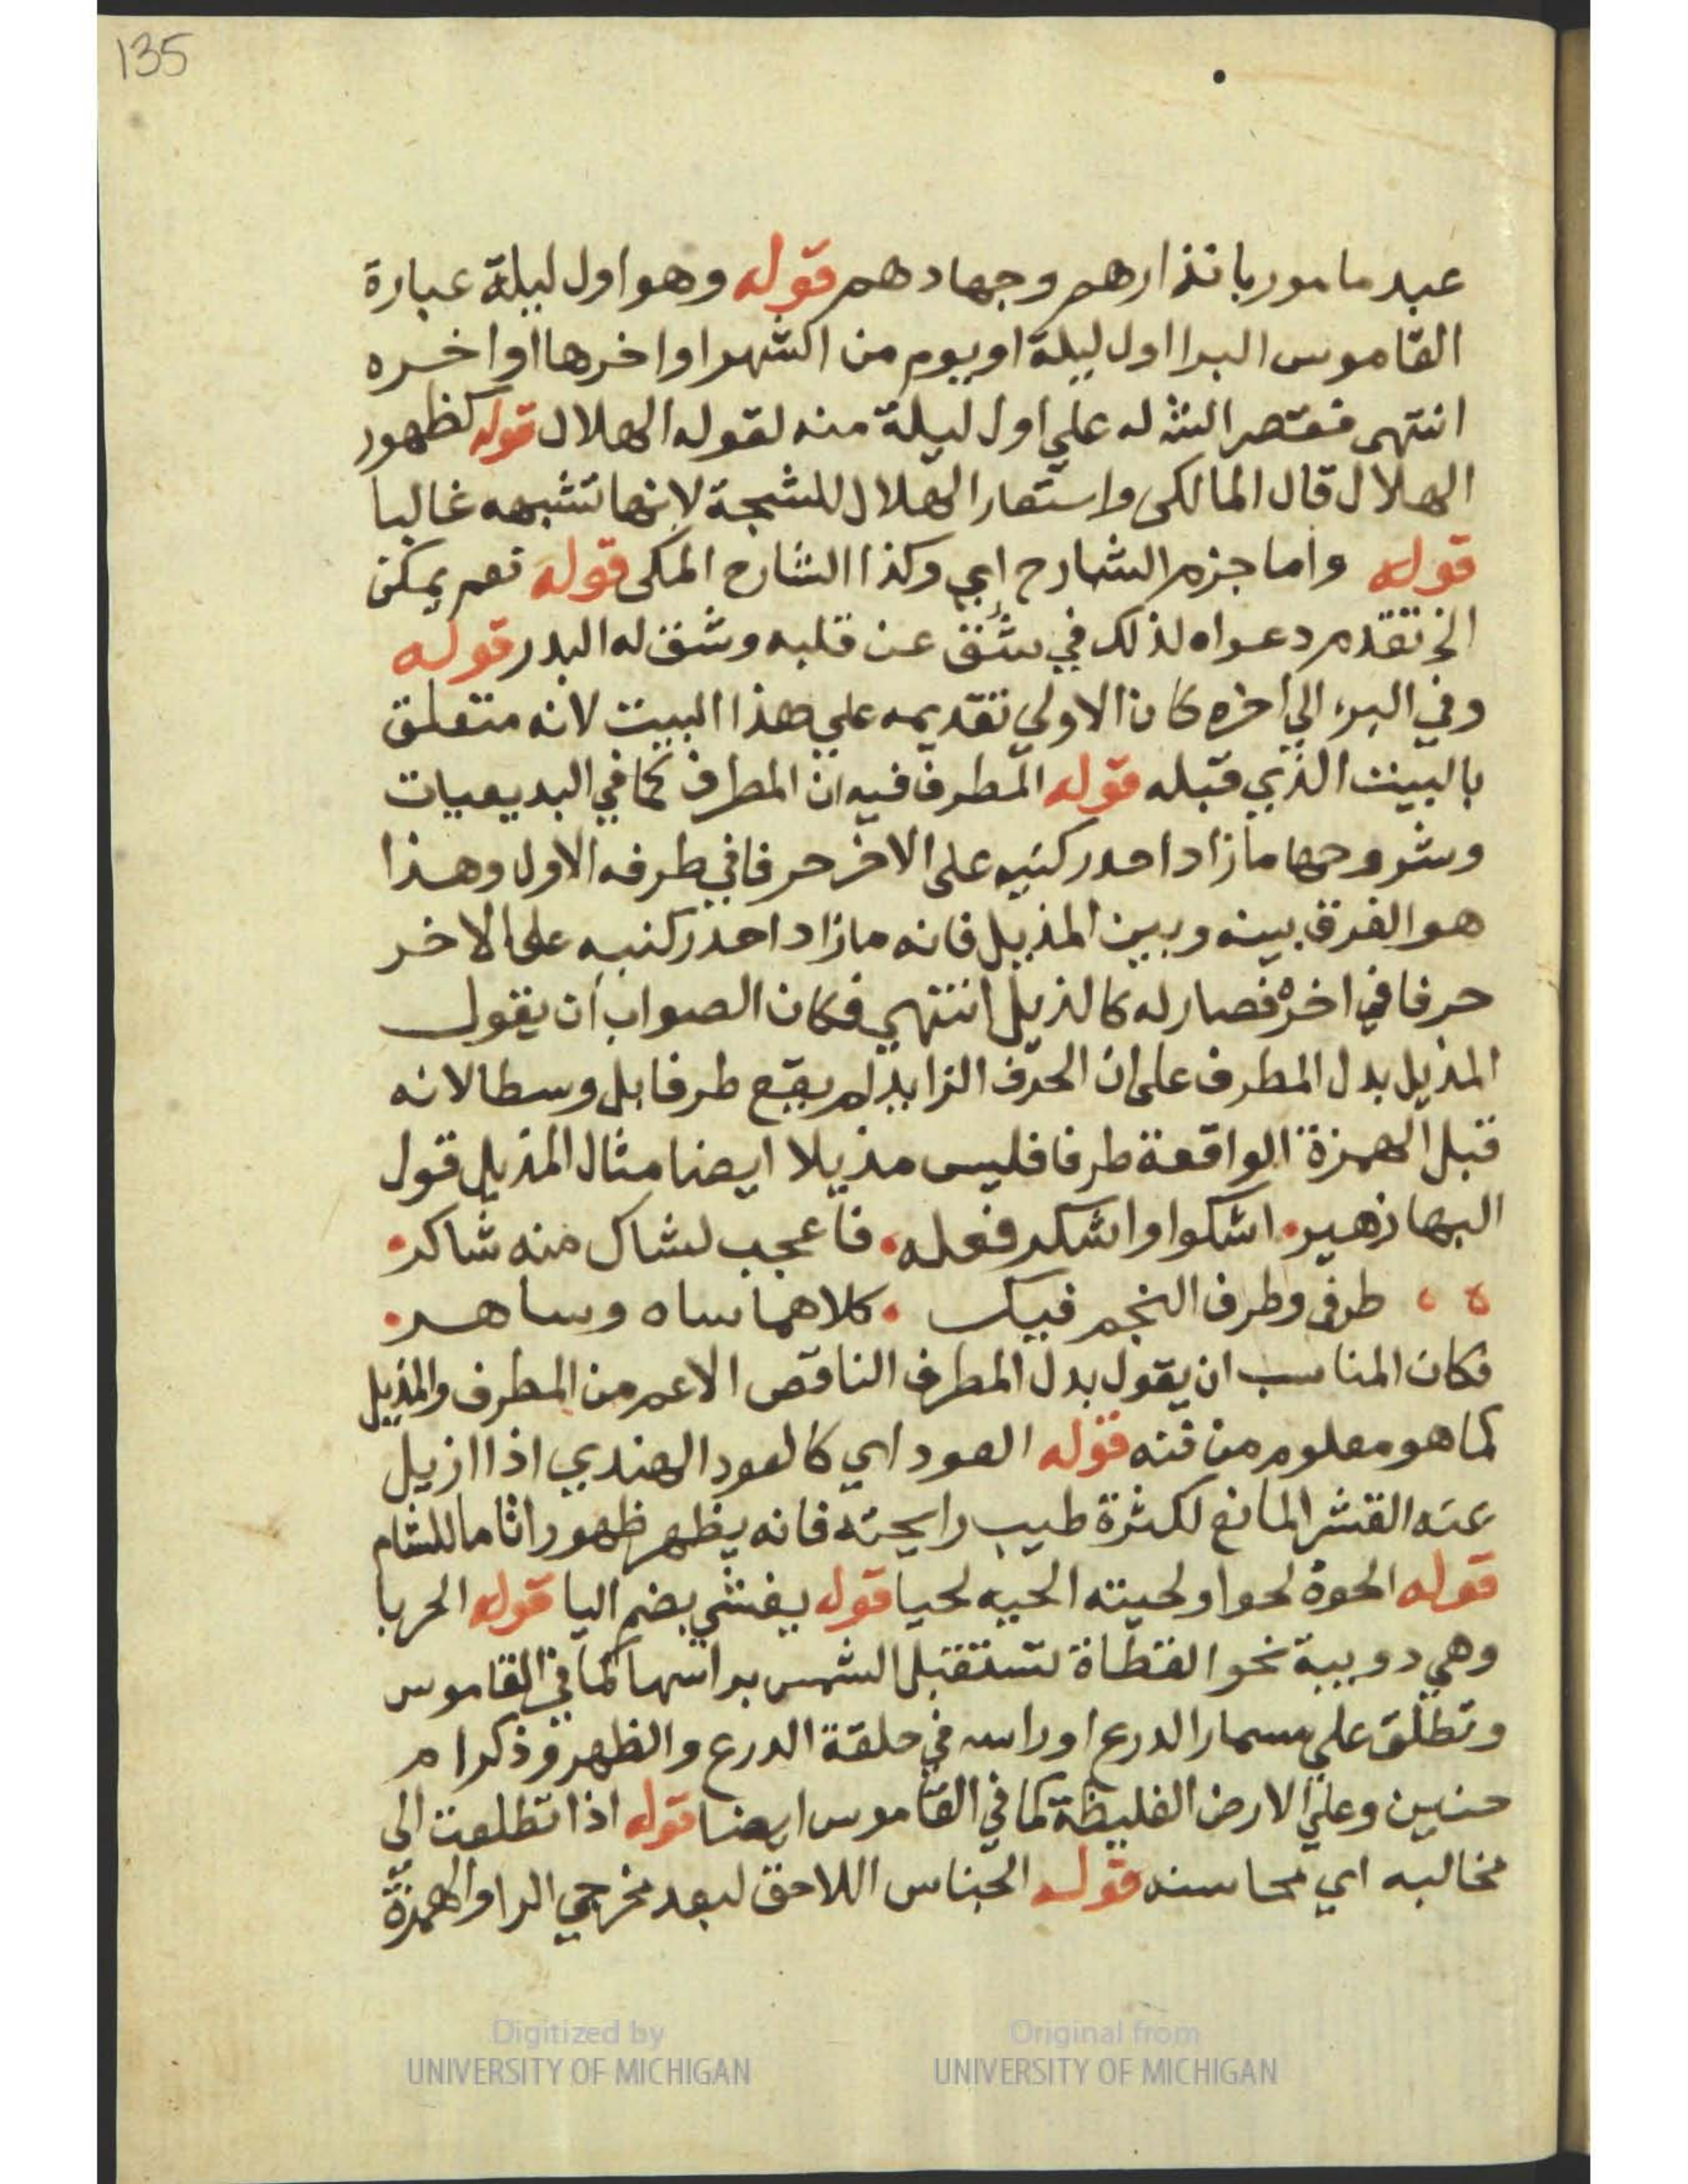 135
عبد مامور بانذارهم وجهادهم قوله وهو اول ليلة عبارة
القاموس البرا اول ليلة او يوم من الشهر او اخرها او اخره
انتهى فقتصر الش له علي اول ليلة منه لقوله الهلال قوله كظهور
الهلال قال المالكى واستعار الهلال للشجة لانها تشبهه غالبا
قوله واما جزم الشارح اي وكذا الشارح المكى قوله نعم يمكن
الخ تقدم دعواه لذلك في شق عن قلبه وشق له البدر قوله
وفي البرء الي اخره كان الاولي تقديمه علي هذا البيت لانه متعلق
بالبيت الذي قبله قوله المطرف فيه ان المطرف كما في البديعيات
وشروحها ما زاد احد ركنيه على الاخر حرفا في طرفه الاول وهذا
هو الفرق بينه وبين المذيل فانه ما زاد احد ركنيه على الاخر
حرفا في اخره فصار له كالذيل انتهي فكان الصواب ان يقول
المذيل بدل المطرف على ان الحرف الزايد لم يقع طرفا بل وسطا لانه
قبل الهمزة الواقعة طرفا فليس مذيلا ايضا مثال المذيل قول
البها زهير. اشكوا واشكر فعله. فاعجب لشاك منه شاكر.
طرفي وطرف النجم فيك . كلاهما ساه وساهر.
فكان المناسب ان يقول بدل المطرف الناقص الاعم من المطرف والمذيل
كما هو معلوم من فنه قوله العود اي كالعود الهندي اذا ازيل
عنه القشر المانع لكثرة طيب رايحته فانه يظهر ظهورا تاما للشام
قوله الحوة لحوا ولحيته الحيه لحيا قوله يفشي بضم اليا قوله الحربا
وهي دويبة نحو القطاة تستقبل الشمس براسها كما في القاموس
وتطلق علي مسمار الدرع او راسه في حلقة الدرع والظهر وذكر ام
حنين وعلي الارض الغليظة كما في القاموس ايضا قوله اذا تطلعت الى
مخالبه اي محاسنه قوله الجناس اللاحق لبعد مخرجي الرا والهمزة
Digitized by
UNIVERSITY OF MICHIGAN
Original from
UNIVERSITY OF MICHIGAN